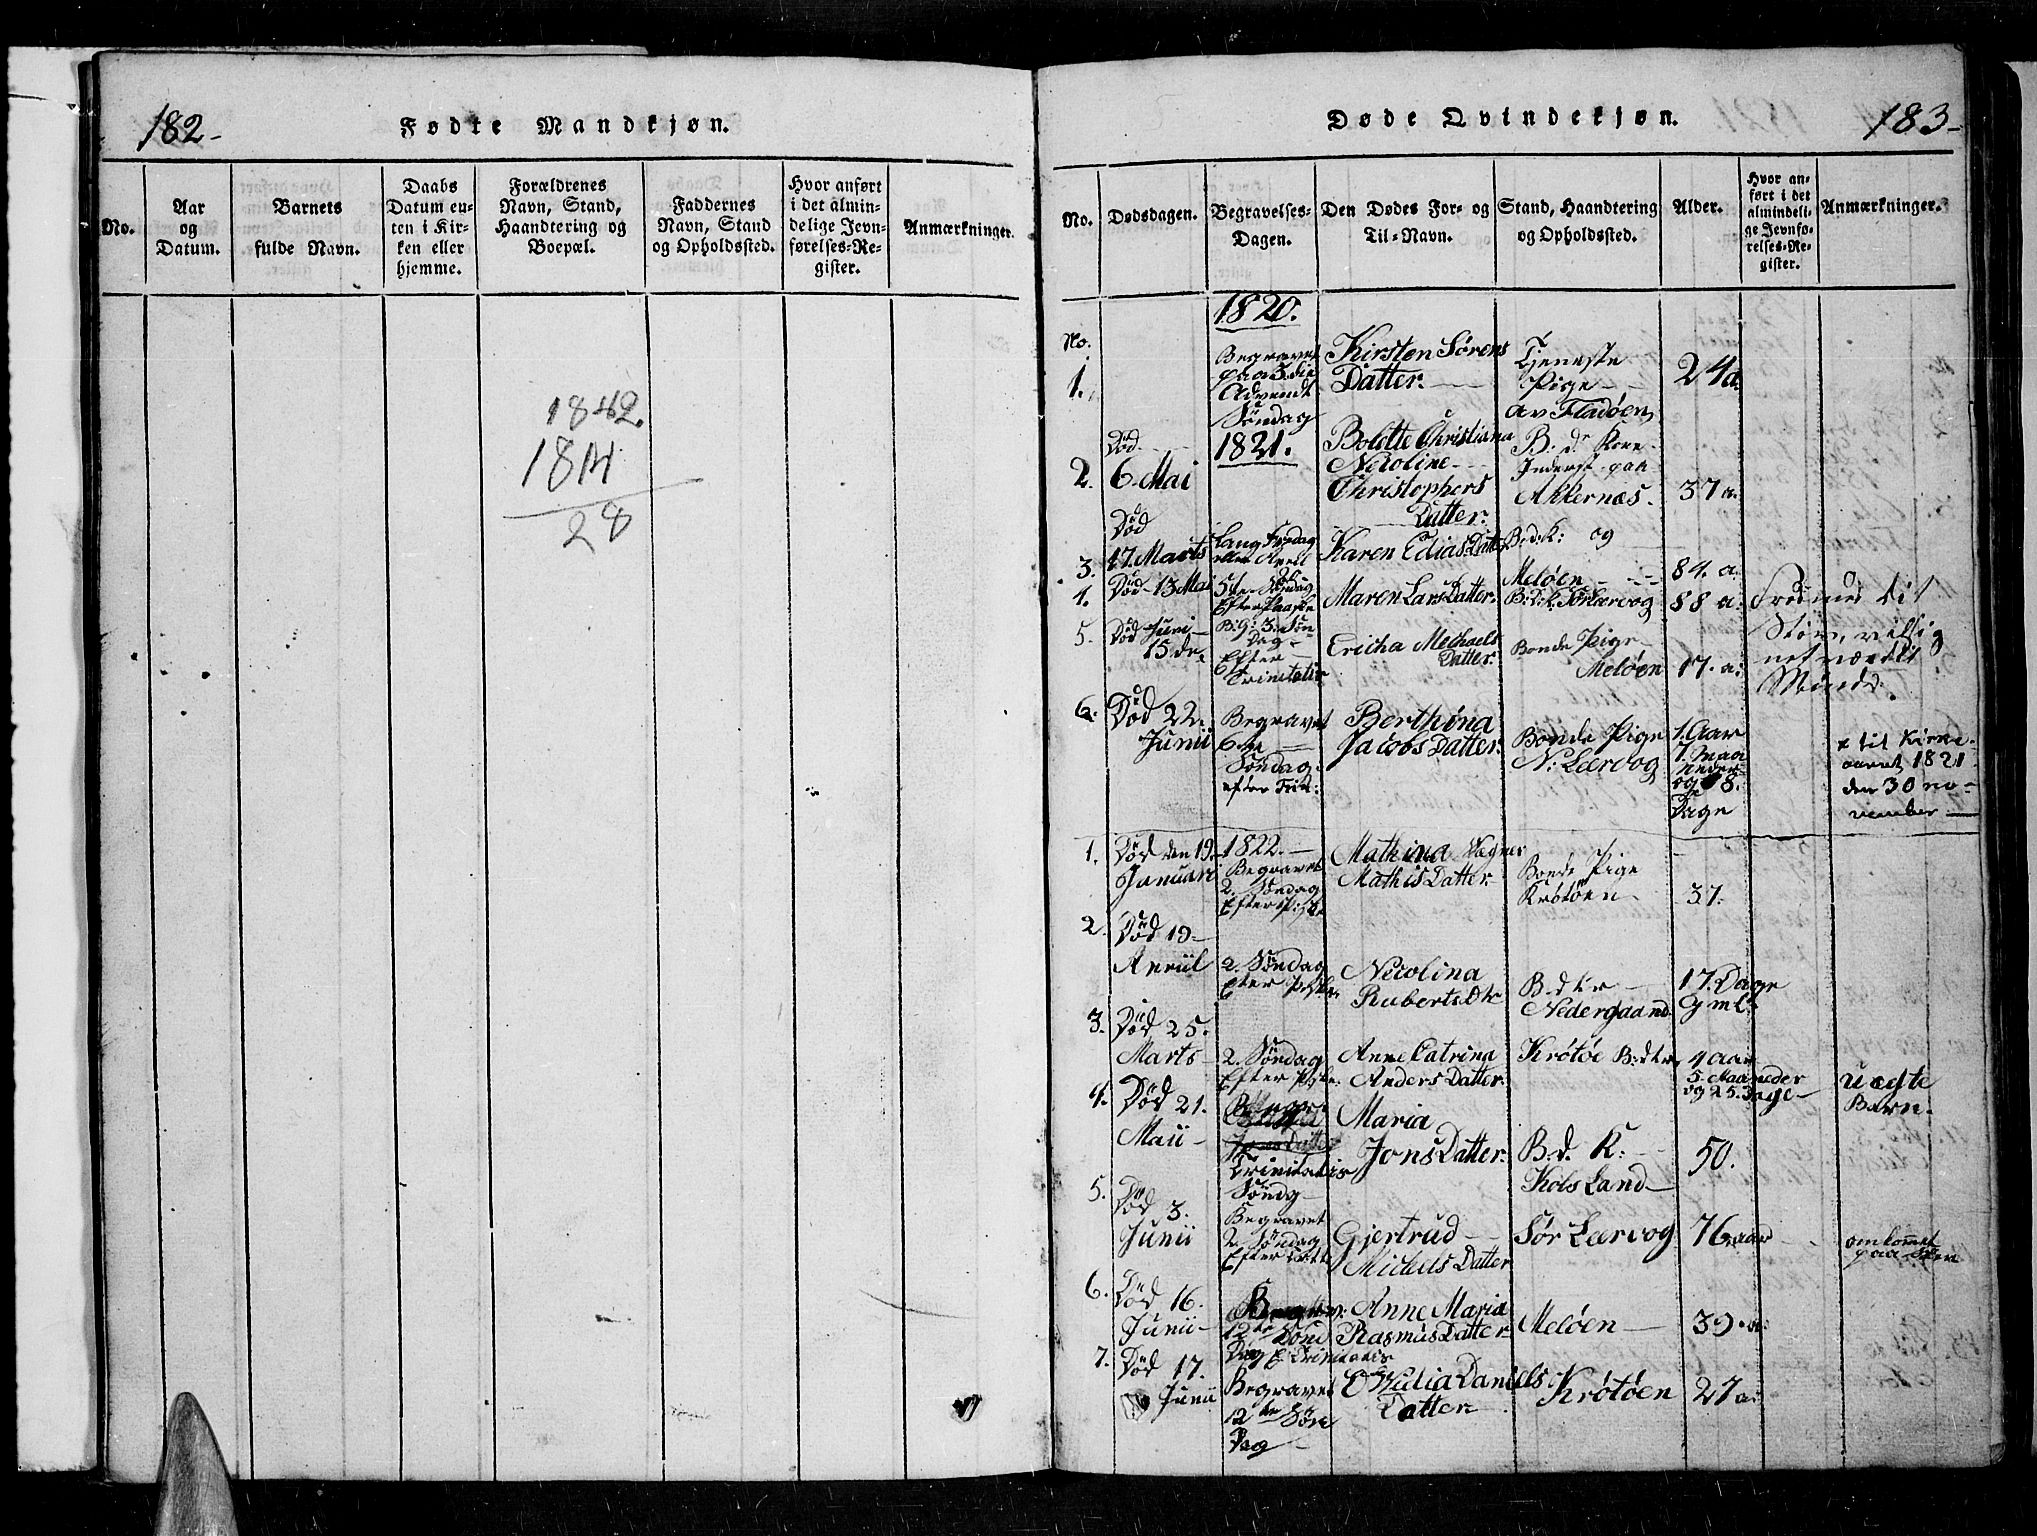 182-
Fødte Mandkjøn.
No.
Aar og Datum.
Barnets fulde Navn.
Daabs Datum enten i Kirken eller hjemme.
Forældrenes Navn, Stand, Haandtering og Boepæl.
Faddernes Navn, Stand og Opholdssted.
Hvor anført i det almindelige Jevnførelses-Register.
Anmærkninger.
1842.
1814
28
Døde Qvindekjøn.
183-
No.
Dødsdagen.
Begravelses-Dagen.
Den Dødes For- og Til-Navn.
Stand, Haandtering og Opholdssted.
Alder.
Hvor anført i det almindelige Jevnførelses-Register.
Anmærkninger.
1820.
No.
1.
Begravet
paa 3. die
Advendt
Søndag
Kirsten Sørens
Datter.
Tjeneste
Pige
av Fladøen
24 a.
2.
Død
6. Mai
1821.
Bolette Christiana
Nicoline
Christophers
Datter.
B: d: Kone
Inderst paa
37 a.
3.
Død
17. Marts
Lang Fredag
April
Karen Edias Datter
B: d: k: og
Meløen
84. a.
Død 13 Mai
5te Søndag
Efter Paaske
Maren Lars Datter.
B: d: k: Sørlærvog
88 a.
5.
Død Juni
15 de
B: g: 3. Søn
Dag
Efter
Trinitatis
Ericha Mechaels
Datter.
Bonde Pige
Meløen
17. a.
6.
Død 22.
Junii
Begravet
6. te
Søndag
efter Trit:
Berthøna
Jacobs Datter.
Bonde Pige
N: Leervog
1. Aar
7. Maa
neder
og 8.
Dage
til Kirke
aaret 1821
den 30 no-
vember
1.
Død den 19.
Januari
1822.
Begravet
2. Søndag
Mathina Wegner
Mathis Datter.
Bonde Pige
Krøtøen
37.
2.
Død 19
Apriil
2. Søndag
Efter
Nicolina
Ruberts Dtr
B: dtr
Nedergaard
17. Dage
gml:
3.
Død 25.
Marts
2. Søndag
Efter
Anne Catrina
Anders Datter.
Krøtøe B: dtr,
4 aar
5. Maaneder
og 25. Dage
uægte
Barn.
4.
Død 21.
Maii
Trinitatis
Søndg
Maria
Jons Datter.
B: d. K:
Kols Land
50.
5.
Død 3.
Junii
Begravet
2. Søndag
Efter
Gjertrud
Michels Datter
Sør Leervog
76 aar
omkommet
paa Søen
6.
Død 16.
Junii
12te Sønd
Dag E Trinitatis
Anne Maria
Rasmus Datter
Meløen
39. a.
7.
Død 17.
Junii
Begravet
12te Søn
Dag
Daniels
Datter
Krøtøen
27 a.